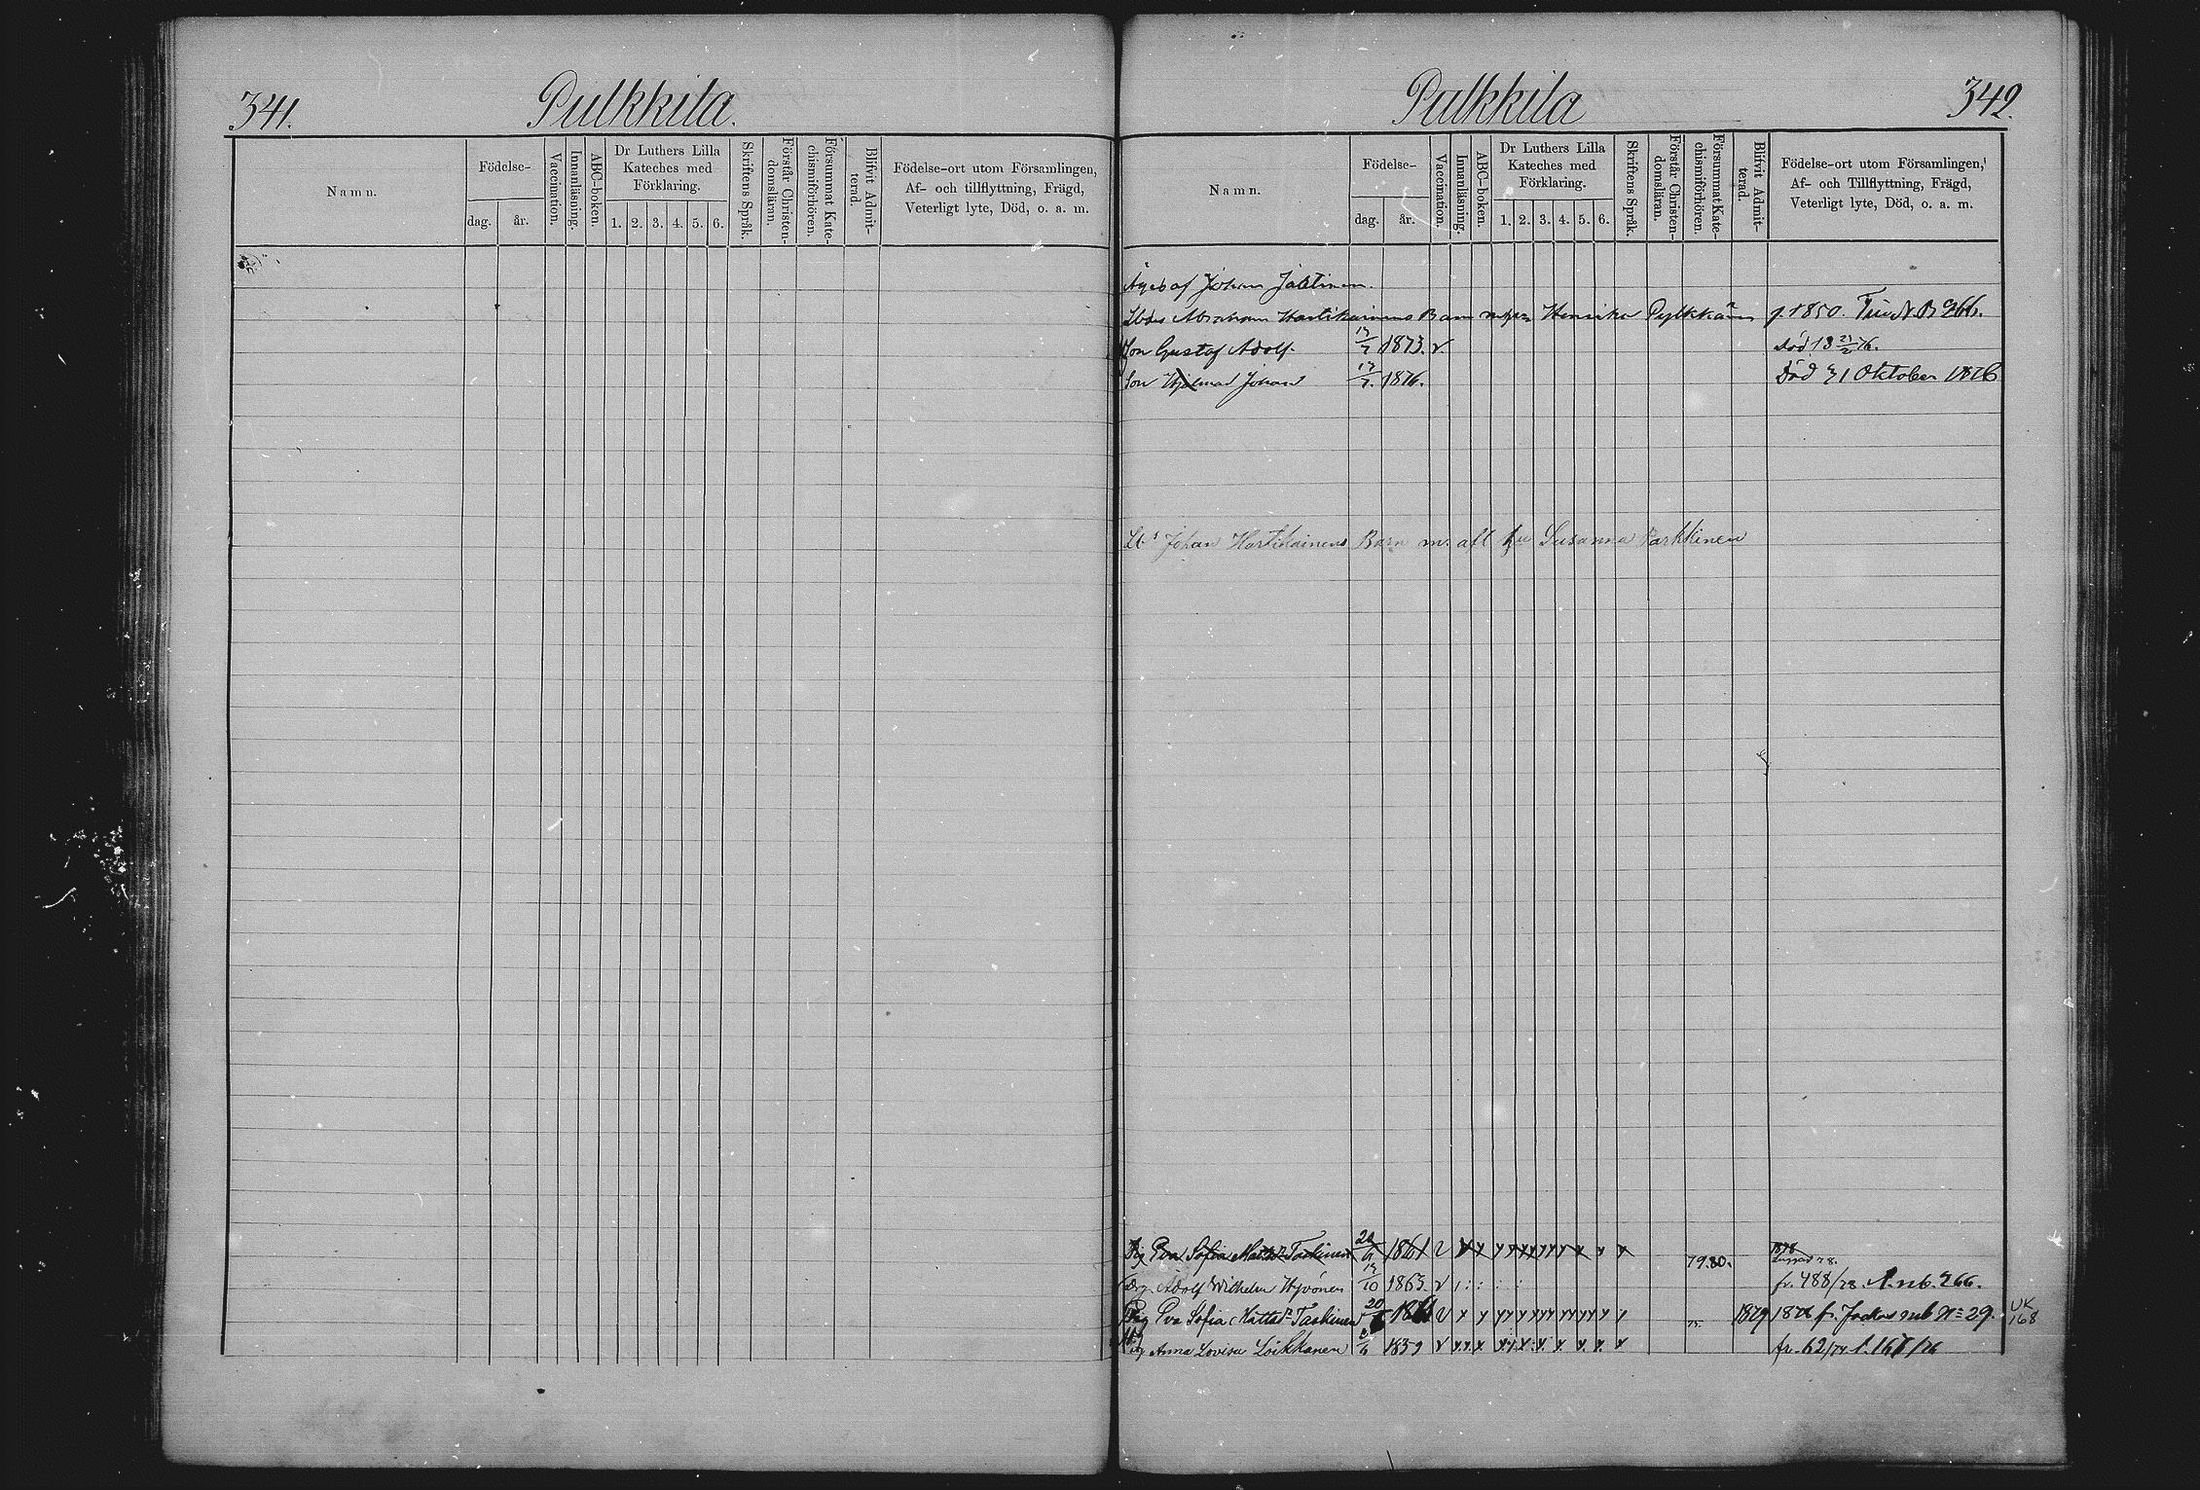 341.
Pulkkila.
Namn.
Födelse-
dag.
år.
Vaccination.
Innanläsning.
ABC-boken.
Dr Luthers Lilla
Kateches med
Förklaring.
1. 2. 3. 4. 5. 6.
Skriftens Språk.
Förstår Christen-
domsläran.
Försummat Kate-
chismiförhören.
Blifvit Admit-
terad.
Födelse-ort utom Församlingen,
Af- och tillflyttning, Frägd,
Veterligt lyte, Död, o. a. m.
Pulkkila
342.
Namn.
Födelse-
dag.
år.
Vaccination.
Innanläsning.
ABC-boken.
Dr Luthers Lilla
Kateches med
Förklaring.
1. 2. 3. 4. 5. 6.
Skriftens Språk.
Förstår Christen-
domsläran.
Försummat Kate-
chismiförhören.
Blifvit Admit-
terad.
Födelse-ort utom Församlingen,
Af- och Tillflyttning, Frägd,
Veterligt lyte, Död, o. a. m.
Äges af Johan
Abraham Hartikainens Barn Henrika Pylkkänen f. 1850.
Son Gustaf Adolf. 1873. v. Död
Son Hjalmar Johan 17/7. 1876. Död 31 Oktober 1876
Johan Hartikainens Barn m. afl hu Susanna Parkkinen
Pig Eva Sofia Mattsd:r Taskinen 20/9 1861 v 79.80. 1878
Drg. Adolf Wilhelm Hyvönen 17/10 1863. v fr. 488/78.
Pig Eva Sofia Mattsd:r Taskinen 20 1861 v 1879 sub N:o 29. UK 168
Pig Anna Lovisa Loikkanen 1859 v fr. 62/74